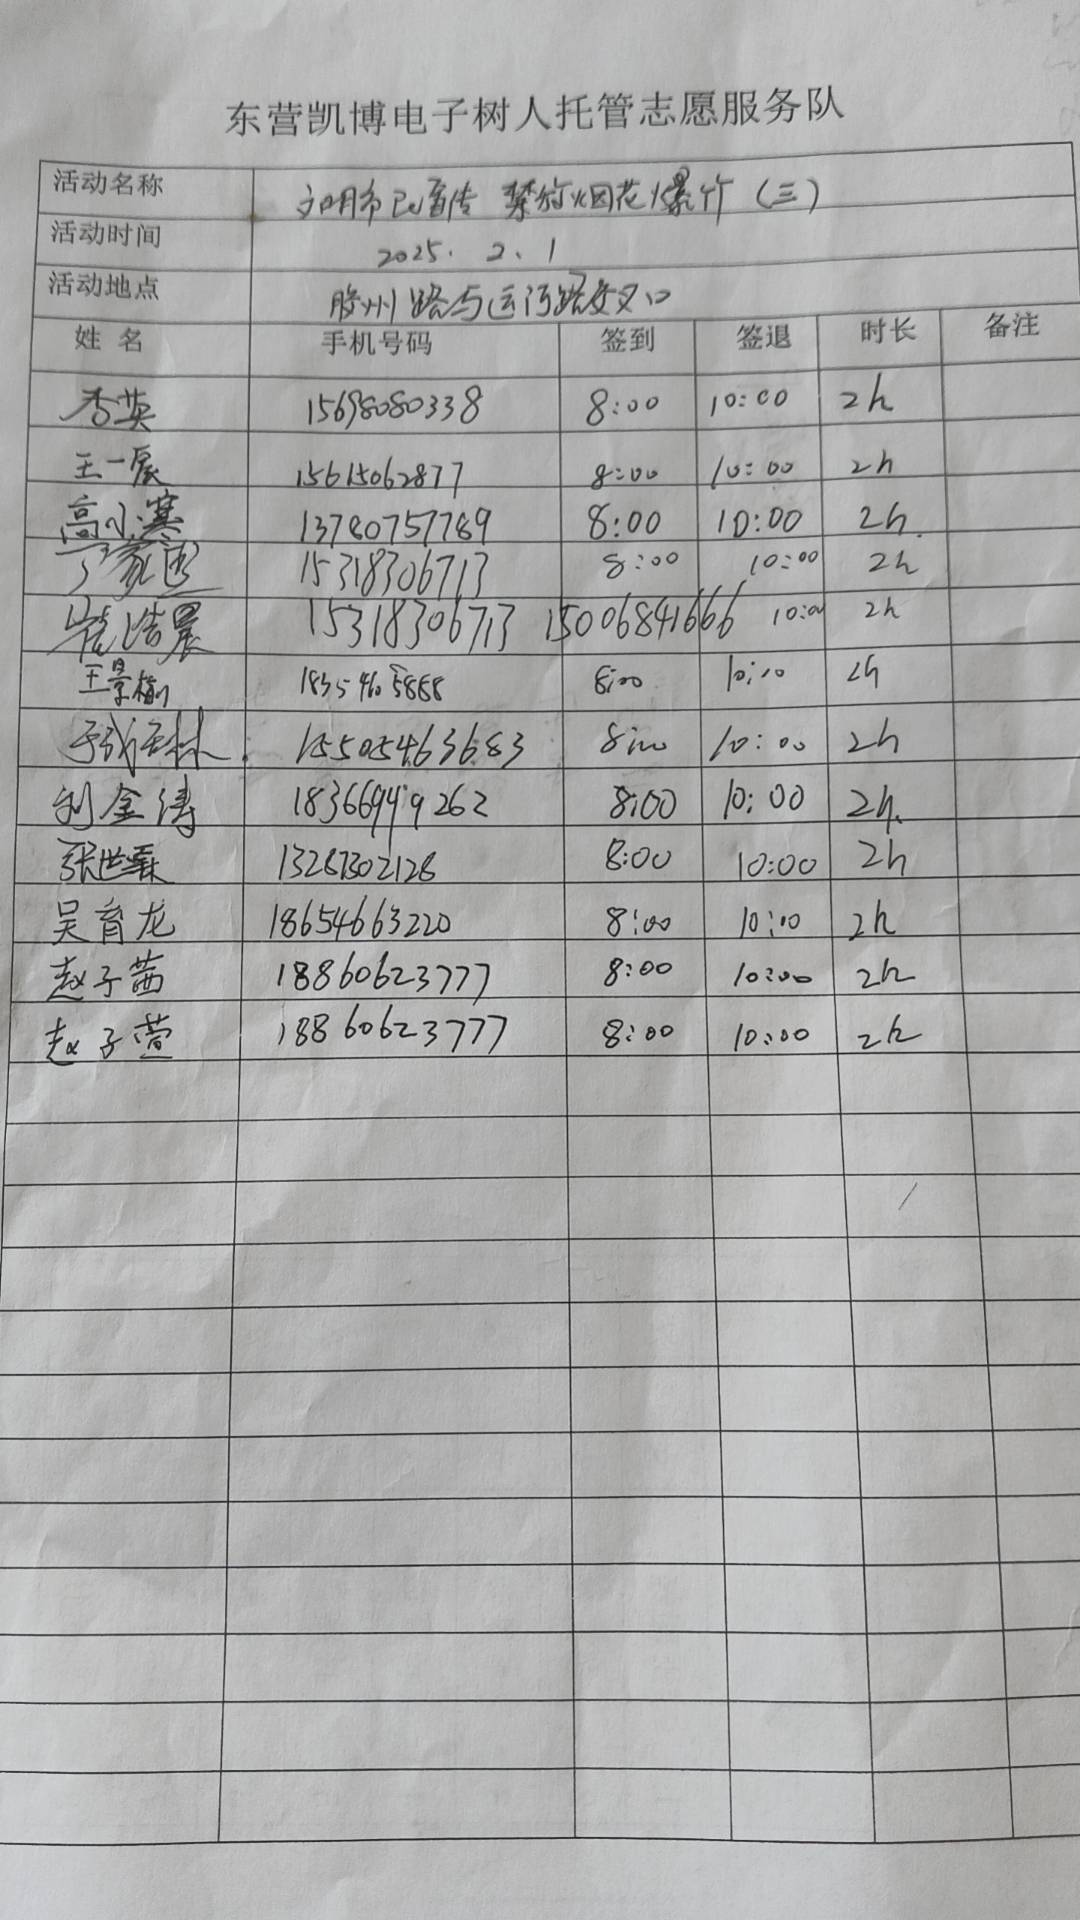 东营凯博电子树人托管志愿服务队
活动名称 文明市民宣传 禁放烟花爆竹（三）
活动时间 2025. 2. 1
活动地点 胶州路与运河路交叉口
姓 名 手机号码 签到 签退 时长 备注
李英 15698080338 8:00 10:00 2h
王一宸 15615062877 8:00 10:00 2h
高小寒 13780757789 8:00 10:00 2h.
丁家 15318306713 8:00 10:00 2h
崔浩晨 15318306713 15006841666 10:00 2h
王景榆 18354605888 8:00 10:00 2h
15505463683 8:00 10:00 2h
刘金涛 18366949262 8:00 10:00 2h.
张世霖 13287302128 8:00 10:00 2h
吴育龙 18654663220 8:00 10:00 2h
赵子茜 18860623777 8:00 10:00 2h
赵子萱 18860623777 8:00 10:00 2h